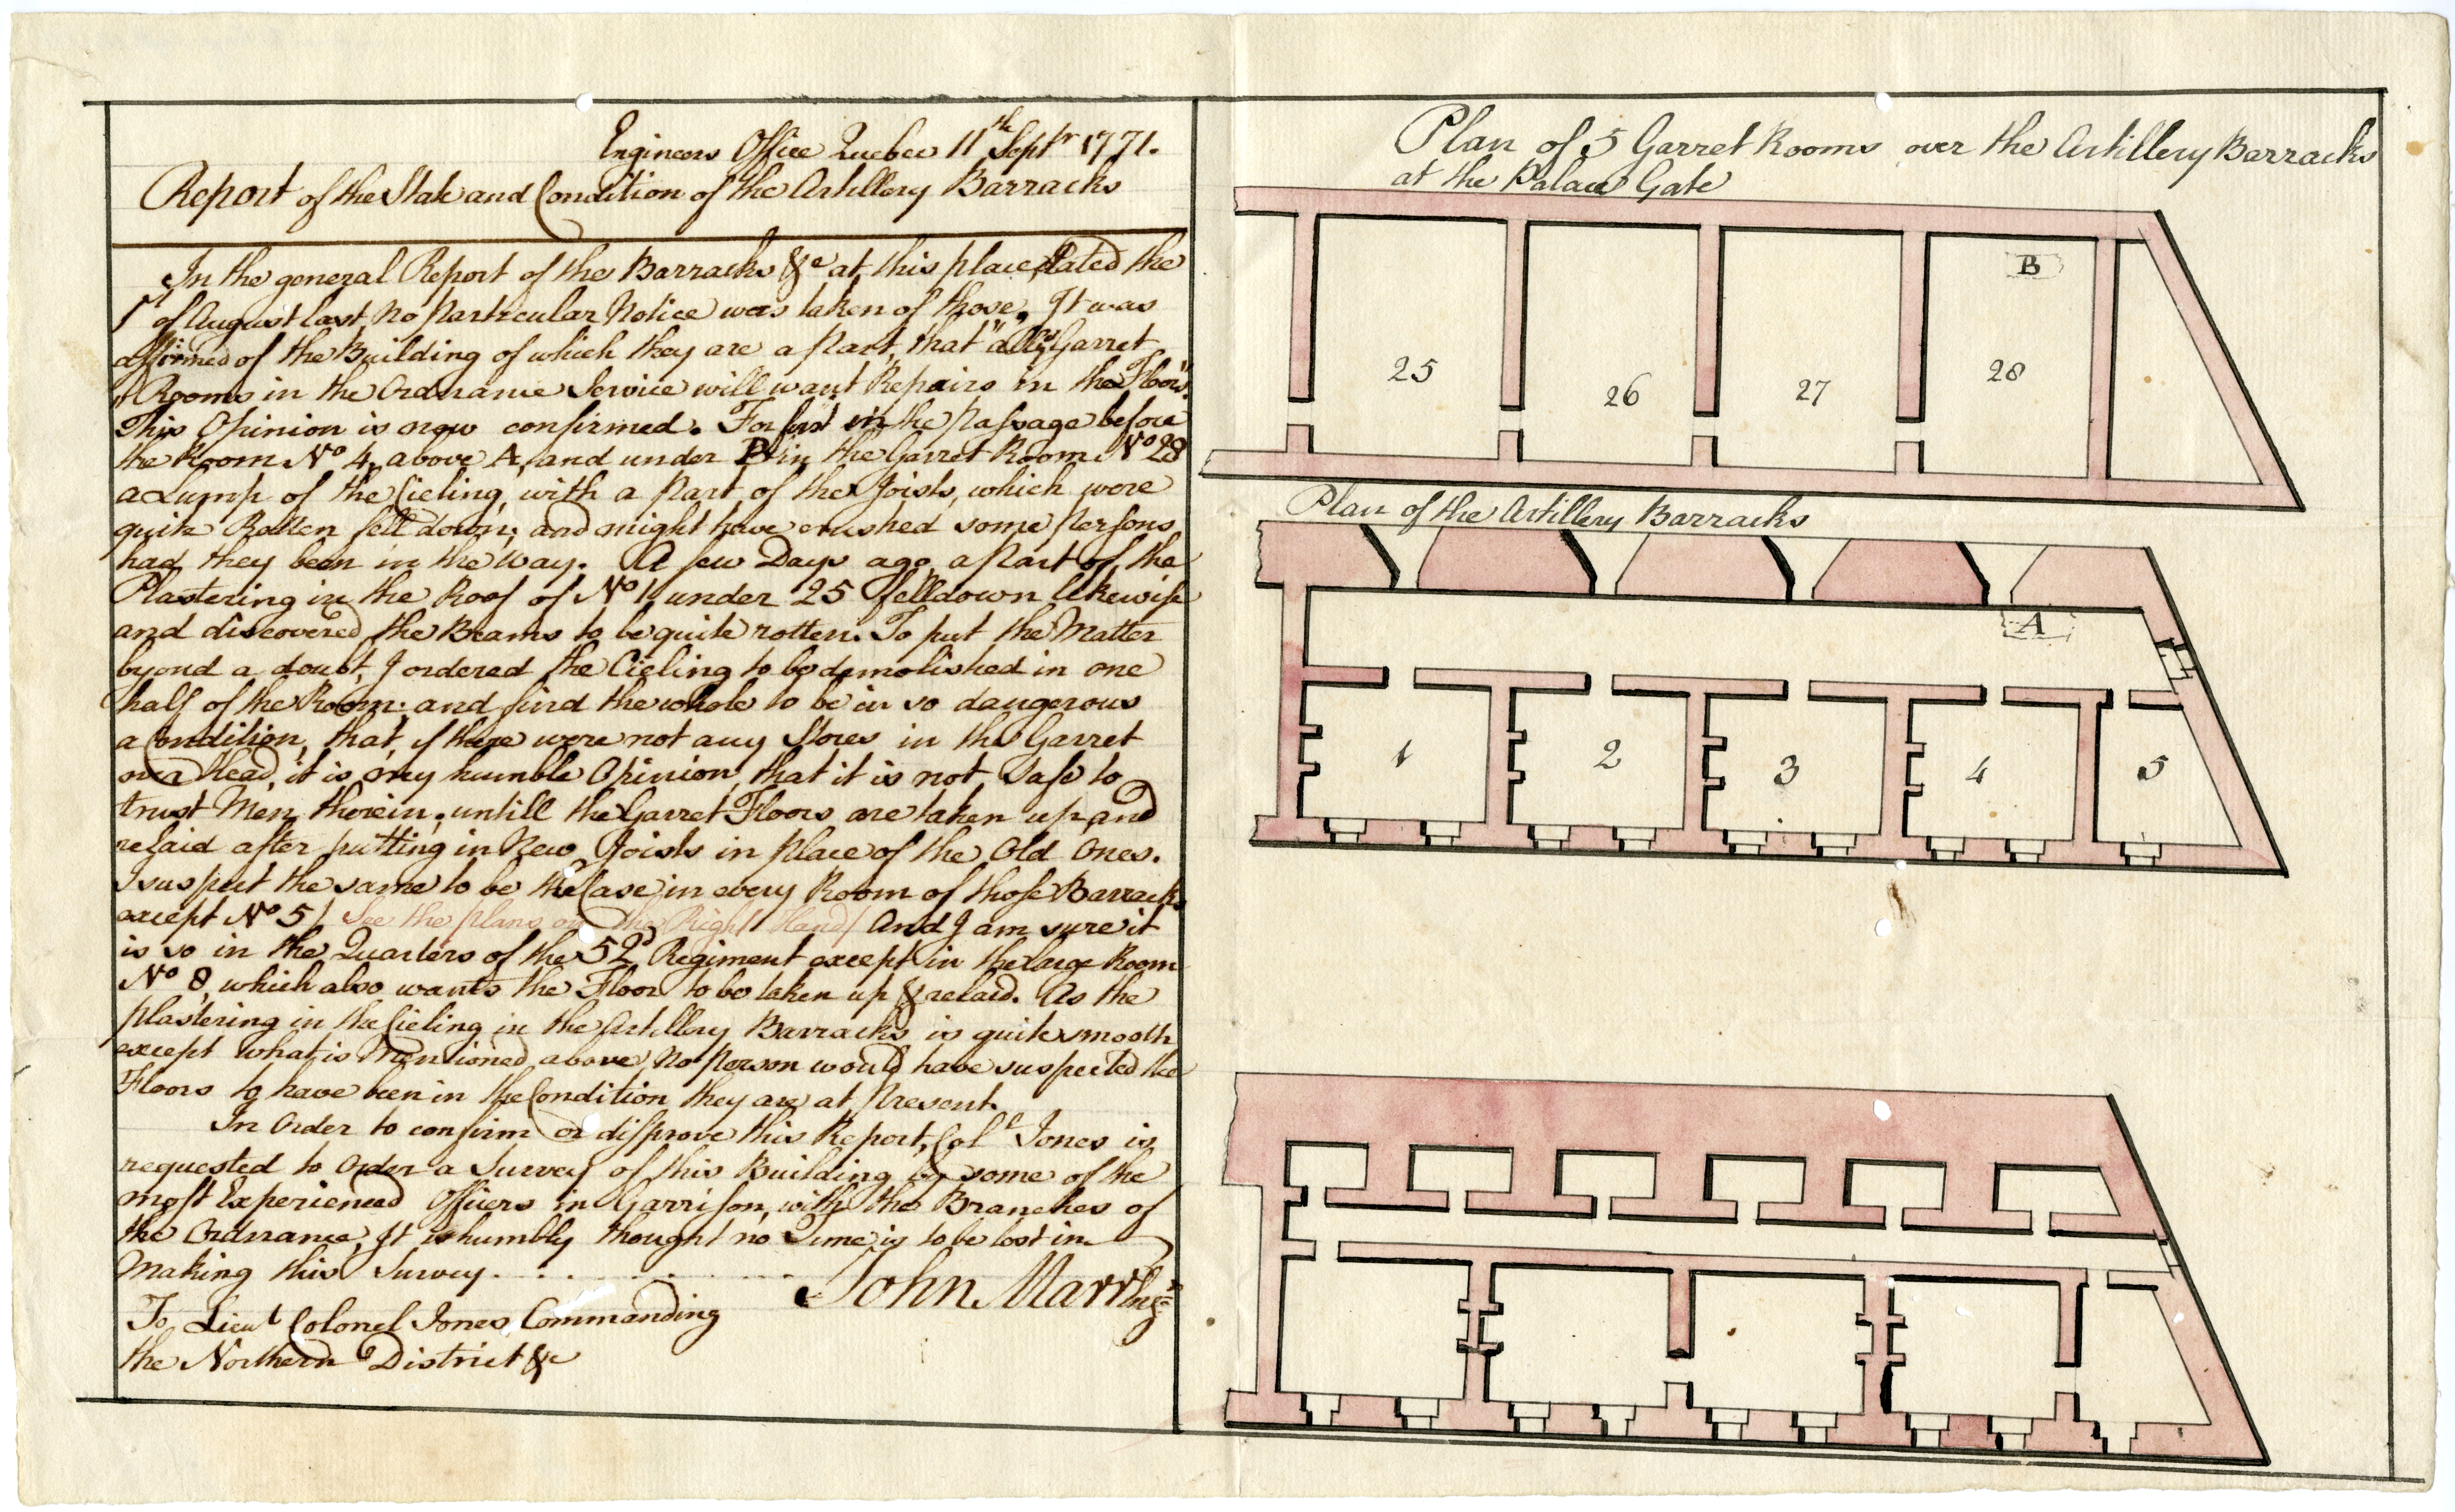 Engineers Office Quebec 11th Septr 1771.
Report of the State and Condition of the Artillery Barracks
In the general Report of the Barracks &c at this place dated the
1st of August last, no Particular Notice was taken of those, It was
affirmed of the Building of which they are a Part, that "all ye Garret
"Rooms in the Ordnance Service will want Repairs in the Floors."
This Opinion is now confirmed. For first in the Passage before
the Room No 4, above A, and under B in the Garret Room No 28
a Lump of the Cieling, with a Part of the Joists, which were
quite Rotten fell down; and might have crushed some Persons
had they been in the way. A few Days ago, a Part of the
Plastering in the Roof of No 1, under 25 fell down likewise
and discovered the Beams to be quite rotten. To put the Matter
byond a doubt, I ordered the Cieling to be demolished in one
half of the Room: and find the whole to be in so dangerous
a Condition, that, if there were not any Stores in the Garret
over Head, it is my humble Opinion, that it is not Safe to
trust Men therein, untill the Garret Floors are taken up and
relaid after putting in New Joists in place of the Old Ones.
I suspect the same to be the Case in every Room of those Barracks
except No 5/ See the plans on the Right Hand/ And I am sure it
is so in the Quarters of the 52d Regiment except in the Large Room
No 8, which also wants the Floor to be taken up & relaid. As the
plastering in the Cieling in the Artillery Barracks is quite smooth
except what is Mentioned above, no Person would have suspected the
Floors to have been in the Condition they are at Present.
In Order to confirm or disprove this Report, Coll Jones is
requested to Order a Survey of this Building by some of the
most Experienced Officers in Garrison, with the Branches of
the Ordnance, It is humbly thought no Time is to be lost in
Making this Survey.
John Marr Engr
To Lieut Colonel Jones Commanding
the Northern District &c
Plan of 5 Garret Rooms over the Artillery Barracks
at the Palace Gate
B
25
26
27
28
Plan of the Artillery Barracks
A
1
2
3
4
5